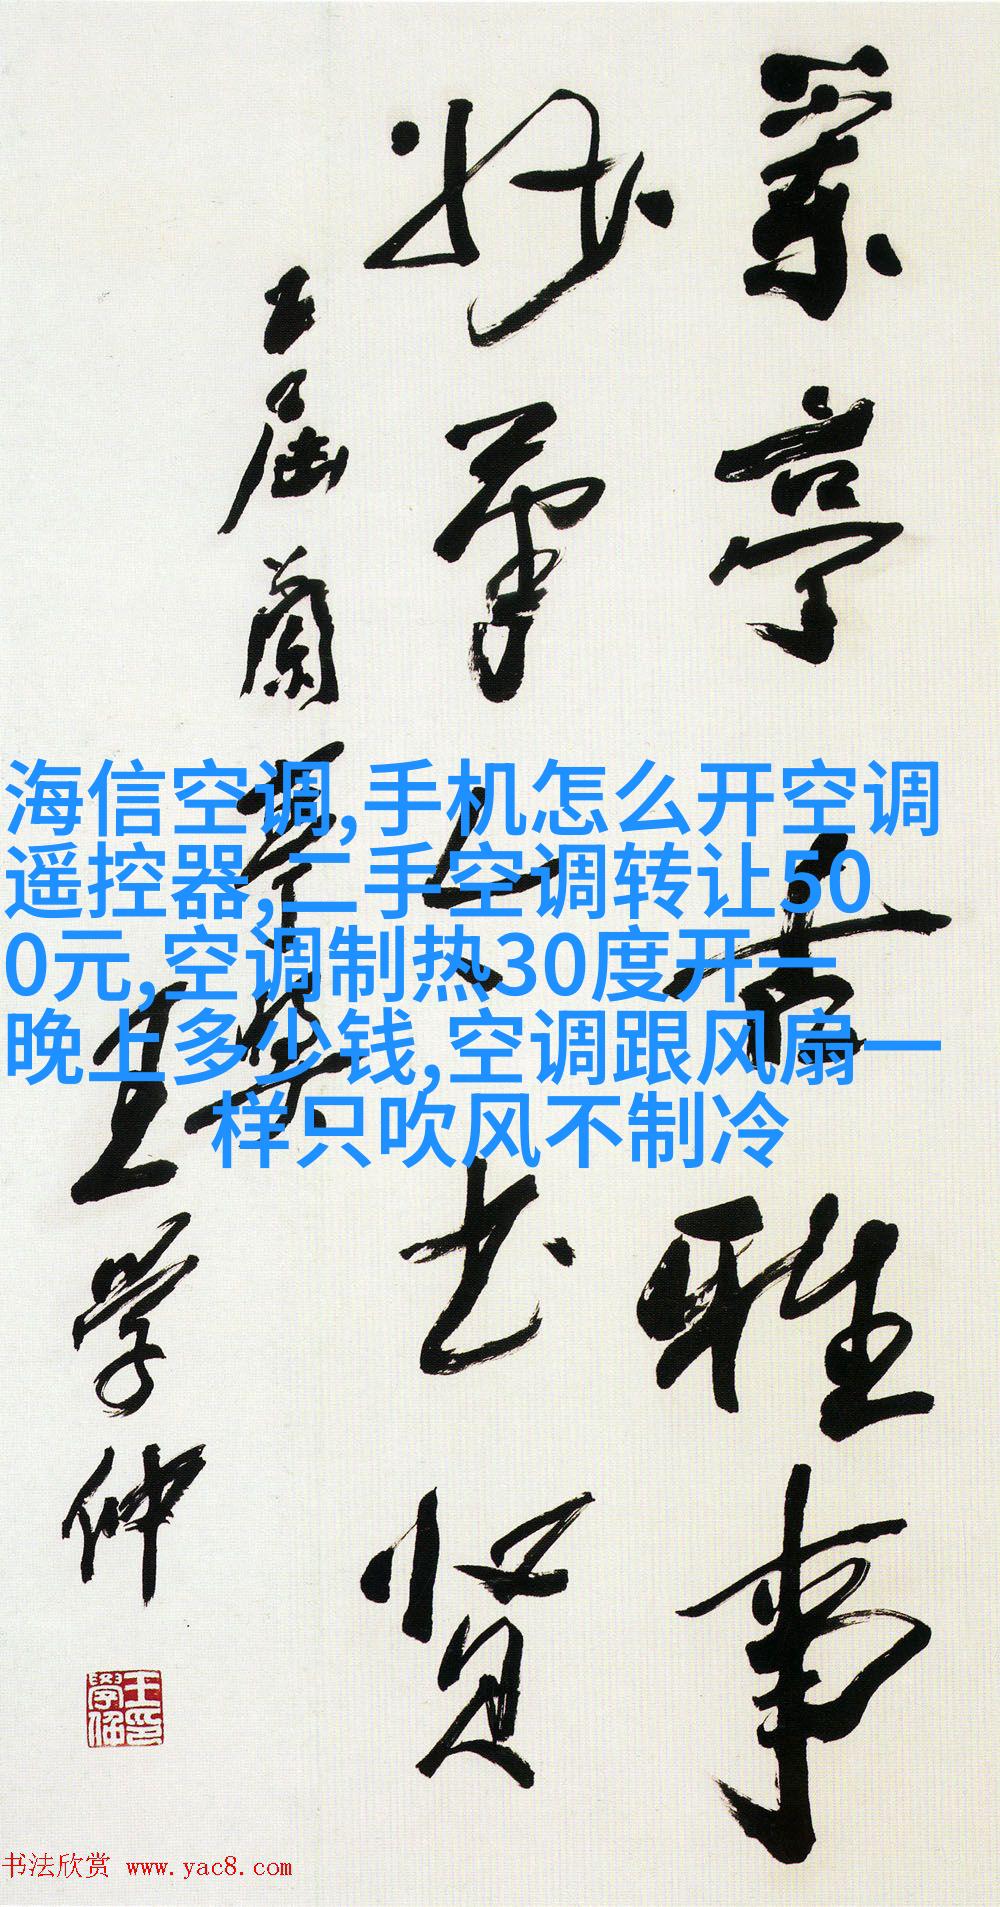 兰亭存雅事
妙笔上书贤
五届兰亭奖
王学仲
王学仲印
海信空调,手机怎么开空调
遥控器,二手空调转让50
0元,空调制热30度开一
晚上多少钱,空调跟风扇一
样只吹风不制冷
书法欣赏 www.yac8.com